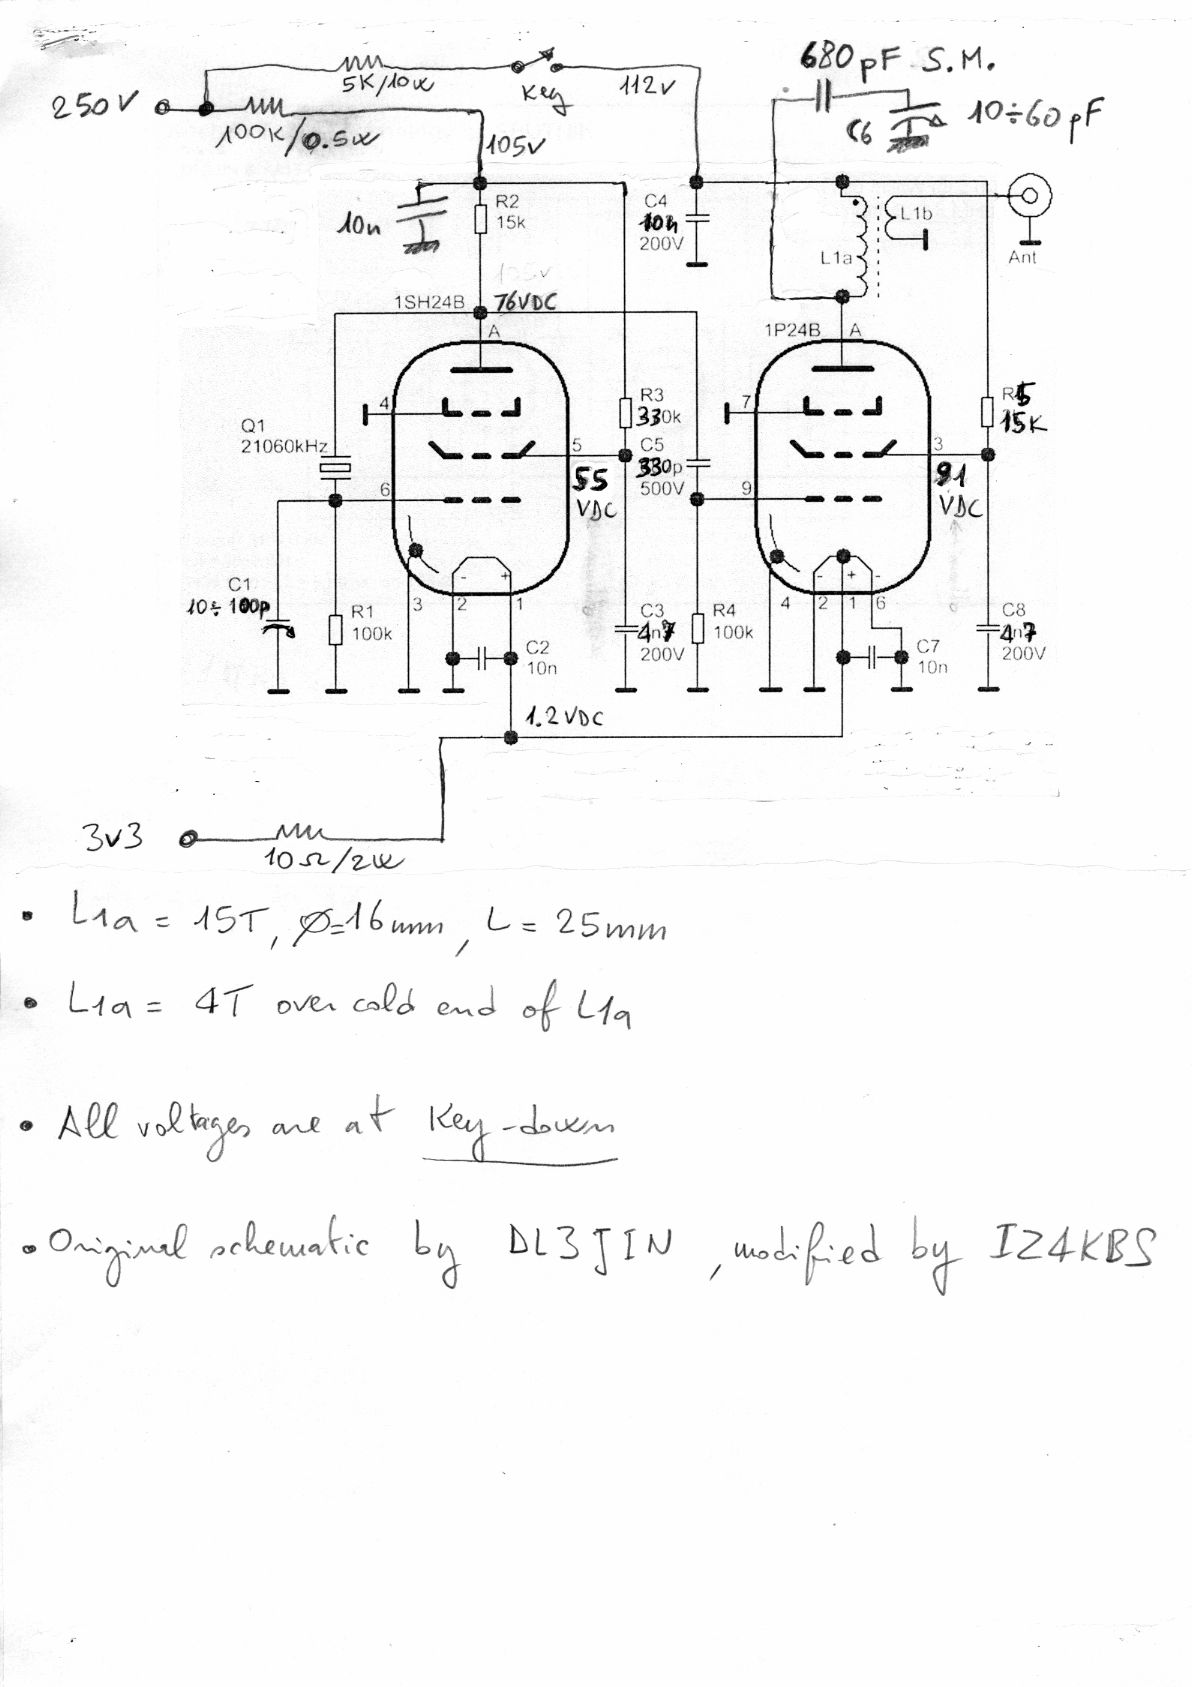 680pF S.M.
5K/10W
Key
112V
250V
100K/0.5W
C6
10÷60pF
105V
10n
R2
15k
C4
10n
200V
L1b
L1a
Ant
1SH24B
76VDC
A
1P24B
A
4
7
Q1
21060kHz
R3
33k
R5
15K
5
C5
330p
500V
3
55
VDC
91
VDC
6
9
C1
10÷100p
R1
100k
3
2
1
- +
C2
10n
C3
47
200V
R4
100k
4
2
1
6
- + -
C7
10n
C8
47
200V
1.2VDC
3v3
10Ω/2W
• L1a = 15T, ø=16mm, L = 25mm
• L1a = 4T over cold end of L1a
• All voltages are at Key-down
• Original schematic by DL3JIN, modified by IZ4KBS